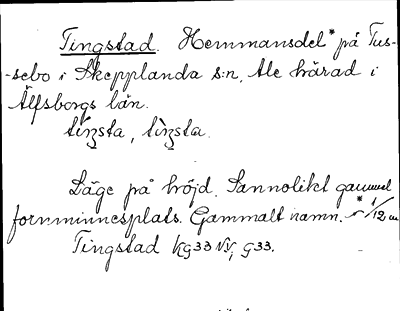 Tingstad. Hemmansdel* på Tus-
-sebo i Skepplanda s:n, Ale härad i
Älfsborgs län.
tíŋsta, tìŋsta.
Läge på höjd. Sannolikt gammal
fornminnesplats. Gammalt namn. * 1/12 m
Tingstad Kg33 NV, G33.